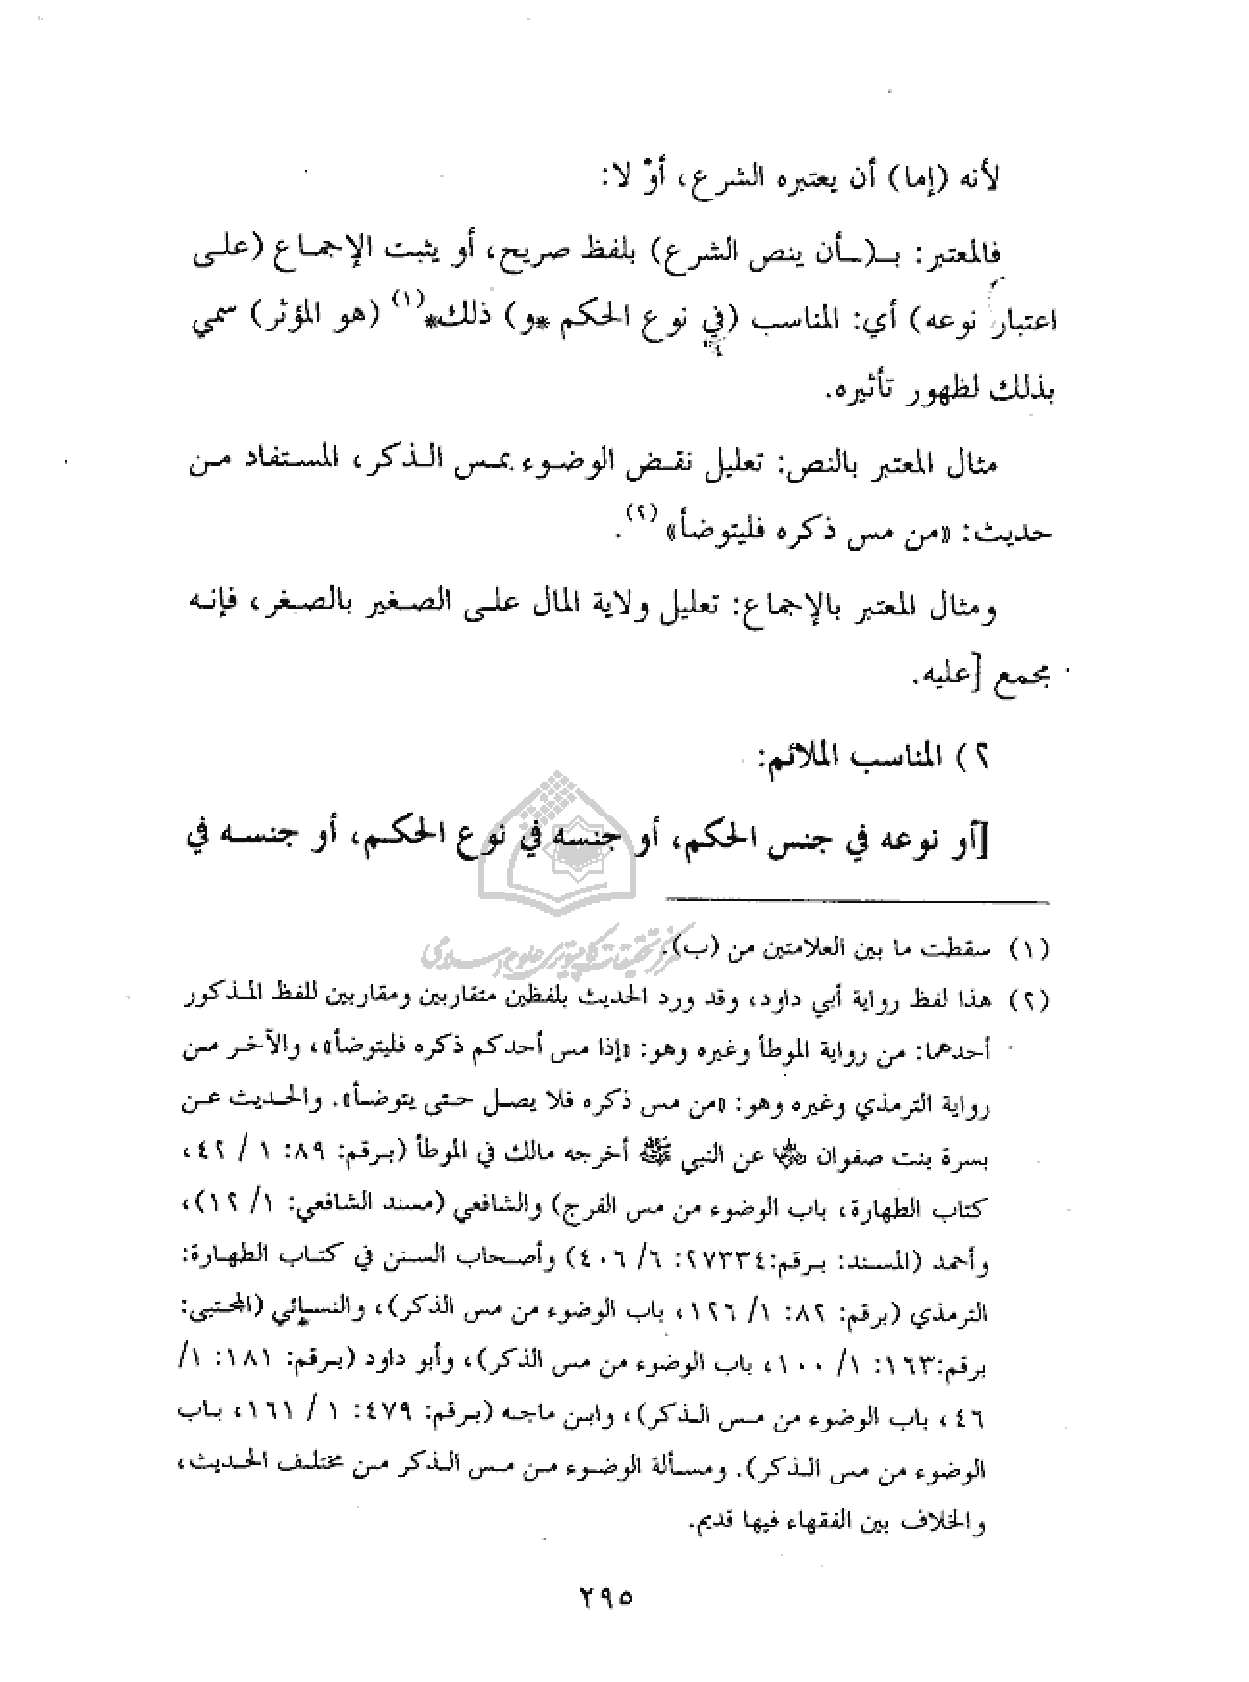 لأنه (إما) أن يعتبره الشرع، أوْ لا:
فالمعتبر: بـ(ـأن ينص الشرع) بلفظ صريح، أو يثبت الإجماع (على
اعتبار نوعه) أي: المناسب (في نوع الحكم *و) ذلك*(١) (هو المؤثر) سمي
بذلك لظهور تأثيره.
مثال المعتبر بالنص: تعليل نقض الوضوء بمس الذكر، المستفاد من
حديث: «من مس ذكره فليتوضأ»(٢).
ومثال المعتبر بالإجماع: تعليل ولاية المال على الصغير بالصغر، فإنه
مجمع [عليه.
٢) المناسب الملائم:
[أو نوعه في جنس الحكم، أو جنسه في نوع الحكم، أو جنسه في
مركز تحقيقات كامپيوترى علوم اسلامى
(١) سقطت ما بين العلامتين من (ب).
(٢) هذا لفظ رواية أبي داود، وقد ورد الحديث بلفظين متقاربين ومقاربين للفظ المذكور
أحدهما: من رواية الموطأ وغيره وهو: «إذا مس أحدكم ذكره فليتوضأ»، والآخر من
رواية الترمذي وغيره وهو: «من مس ذكره فلا يصل حتى يتوضأ». والحديث عن
بسرة بنت صفوان رضي الله عنها عن النبي ﷺ أخرجه مالك في الموطأ (برقم: ٨٩: ١ / ٤٢،
كتاب الطهارة، باب الوضوء من مس الفرج) والشافعي (مسند الشافعي: ١/ ١٢)،
وأحمد (المسند: برقم:٢٧٣٣٤: ٦/ ٤٠٦) وأصحاب السنن في كتاب الطهارة:
الترمذي (برقم: ٨٢: ١/ ١٢٦، باب الوضوء من مس الذكر)، والنسائي (المجتبى:
برقم:١٦٣: ١/ ١٠٠، باب الوضوء من مس الذكر)، وأبو داود (برقم: ١٨١: ١/
٤٦، باب الوضوء من مس الذكر)، وابن ماجه (برقم: ٤٧٩: ١ / ١٦١، باب
الوضوء من مس الذكر). ومسألة الوضوء من مس الذكر من مختلف الحديث،
والخلاف بين الفقهاء فيها قديم.
٢٩٥